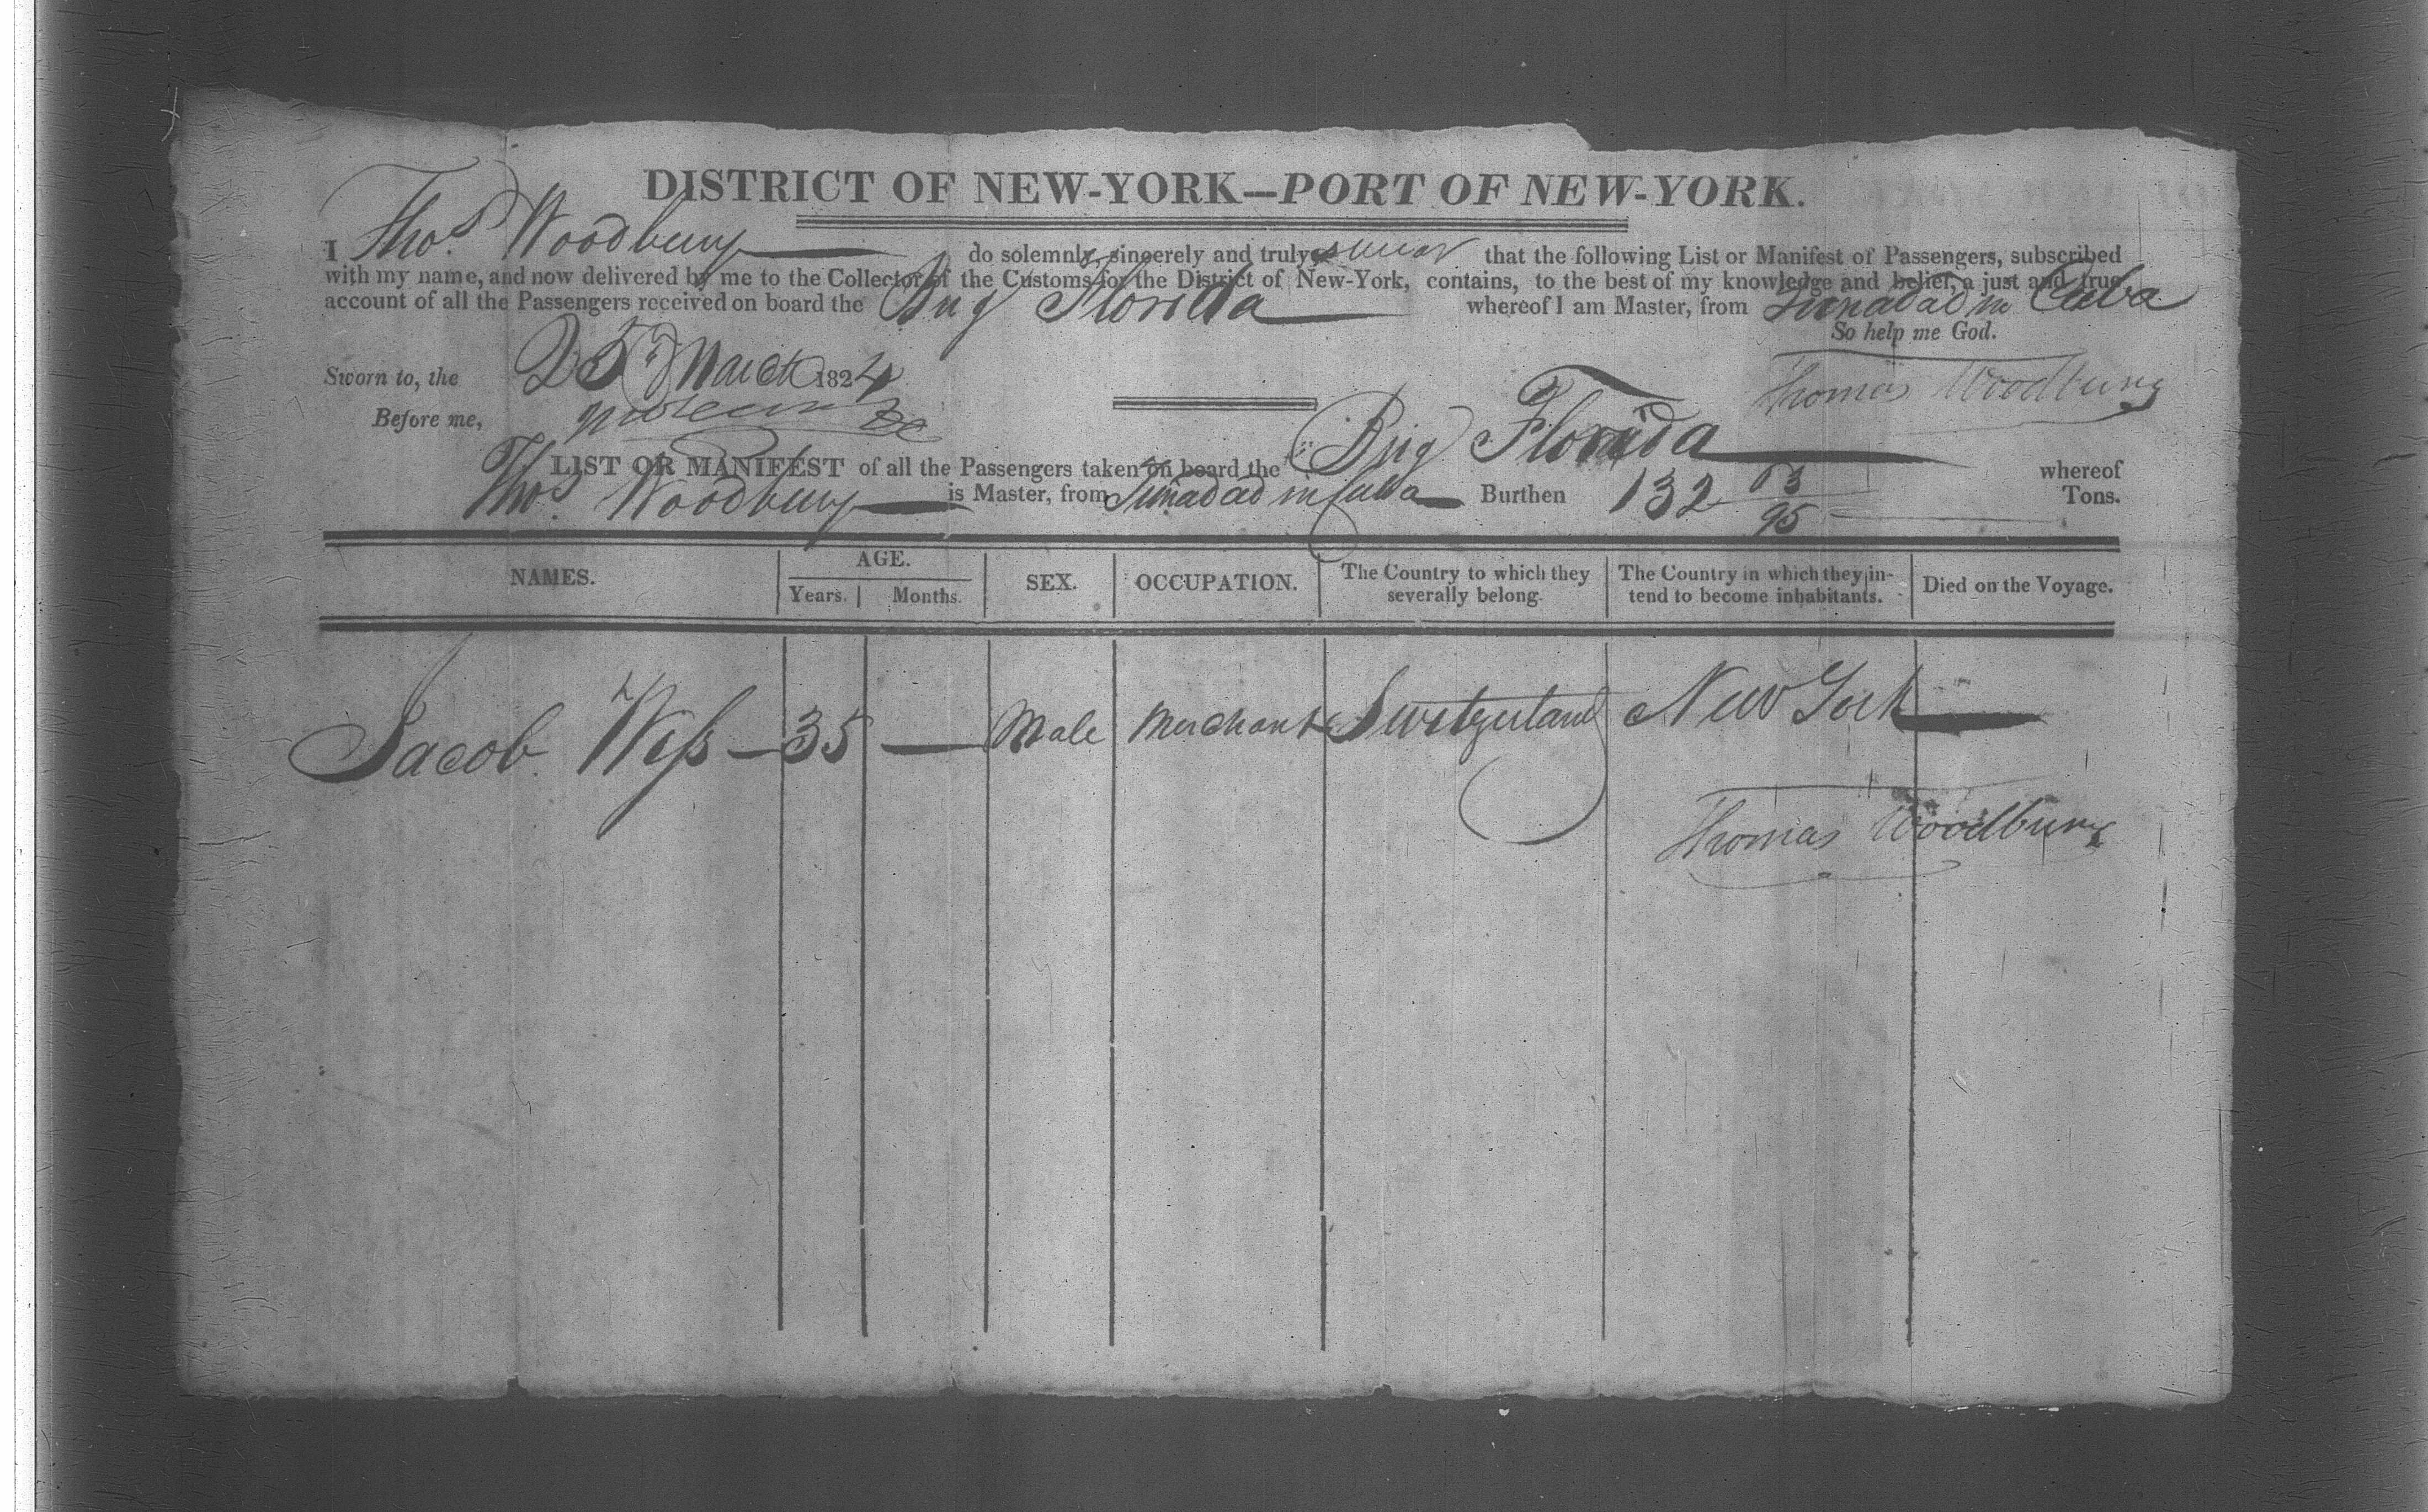 DISTRICT OF NEW-YORK—PORT OF NEW-YORK.
I Thos. Woodbury do solemnly, sincerely and truly swear that the following List or Manifest of Passengers, subscribed
with my name, and now delivered by me to the Collector of the Customs for the District of New-York, contains, to the best of my knowledge and belief, a just and true
account of all the Passengers received on board the Brig Florida whereof I am Master, from Trinadad in Cuba
So help me God.
Sworn to, the 25 March 1824 Thomas Woodbury
Before me,
LIST OR MANIFEST of all the Passengers taken on board the Brig Florida whereof
Thos. Woodbury is Master, from Trinadad in Cuba Burthen 132 63/95 Tons.
NAMES. AGE. Years. Months. SEX. OCCUPATION. The Country to which they severally belong. The Country in which they intend to become inhabitants. Died on the Voyage.
Jacob Wess — 35 — Male Merchant Switzerland New York —
Thomas Woodbury